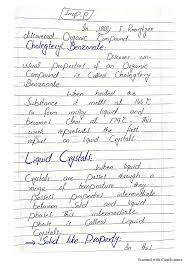 Imp.p
In 1888, F. Reinitzer
discovered Organic Compound
Cholesteryl Benzoate:
Discover un-
usual Properties of an Organic
Compound is Called Cholesteryl
Benzoate
When heated the
Substance it melts at 145°C
to form milky liquid and
becomes clear at 179°C. This
was represented the first
report on liquid Crystals.
Liquid Crystals:
When liquid
Crystals are passes through a
range of temperature they
possess properties intermediate
between Solid and liquid
phase. This intermediate
Phase is Called Liquid
Crystals.
→ Solid like Property:
In this
Scanned with CamScanner